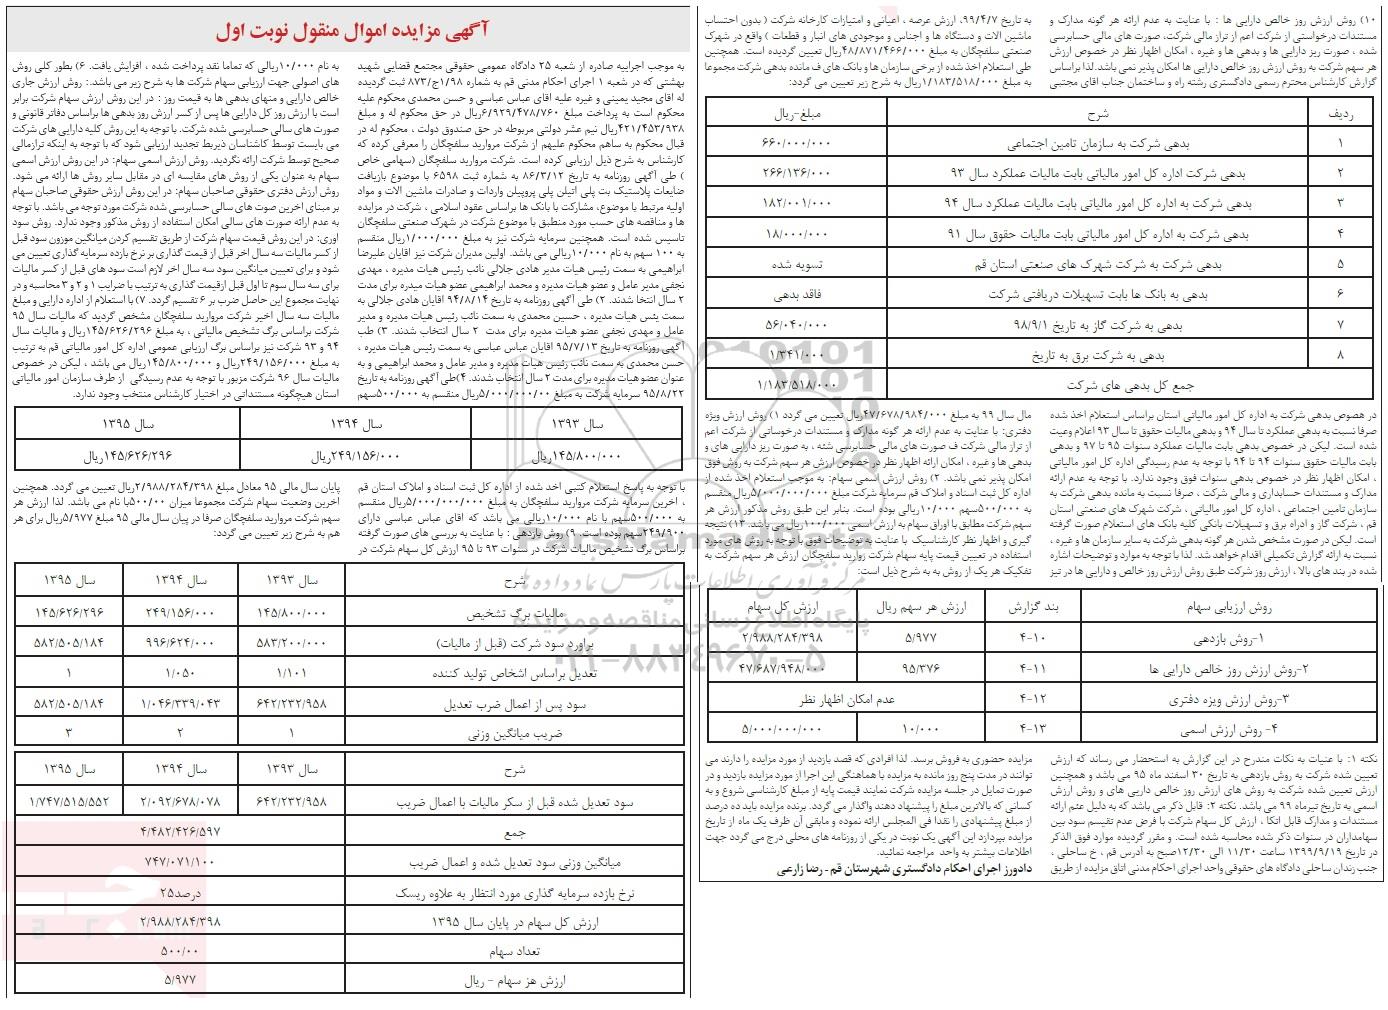 آگهی مزایده اموال منقول نوبت اول
به موجب اجراییه صادره از شعبه ۲۵ دادگاه عمومی حقوقی مجتمع قضایی شهید
بهشتی که در شعبه ۱ اجرای احکام مدنی قم به شماره ۱/۹۸ج/۸۷۳ ثبت گردیده
له اقای مجید یمینی و غیره علیه اقای عباس عباسی و حسن محمدی محکوم علیه
محکوم است به پرداخت مبلغ ۶/۹۲۹/۴۷۸/۷۶۰ریال در حق محکوم له و مبلغ
۴۲۱/۴۵۳/۹۳۸ریال نیم عشر دولتی مربوطه در حق صندوق دولت ، محکوم له در
قبال محکوم به ساهم محکوم علیهم از شرکت مروارید سلفچگان را معرفی کرده که
کارشناس به شرح ذیل ارزیابی کرده است. شرکت مروارید سلفچگان (سهامی خاص
) طی آگهی روزنامه به تاریخ ۸۶/۳/۱۲ به شماره ثبت ۶۵۹۸ با موضوع بازیافت
ضایعات پلاستیک بت پلی اتیلن پلی پروپیلن واردات و صادرات ماشین الات و مواد
اولیه مرتبط با موضوع، مشارکت با بانک ها براساس عقود اسلامی ، شرکت در مزایده
ها و مناقصه های حسب مورد منطبق با موضوع شرکت در شهرک صنعتی سلفچگان
تاسیس شده است. همچنین سرمایه شرکت نیز به مبلغ ۱/۰۰۰/۰۰۰ریال منقسم
به ۱۰۰ سهم به نام ۱۰/۰۰۰ریالی می باشد. اولین مدیران شرکت نیز اقایان علیرضا
ابراهیمی به سمت رئیس هیات مدیر هادی جلالی نائب رئیس هیات مدیره ، مهدی
نجفی مدیر عامل و عضو هیات مدیره و محمد ابراهیمی عضو هیات میدره برای مدت
۲ سال انتخا شدند. ۲) طی آگهی روزنامه به تاریخ ۹۴/۸/۱۴ اقایان هادی جلالی به
سمت یئس هیات مدیره ، حسین محمدی به سمت نائب رئیس هیات مدیره و مدیر
عامل و مهدی نجفی عضو هیات مدیره برای مدت ۲ سال انتخاب شدند. ۳) طب
آگهی روزنامه به تاریخ ۹۵/۷/۱۳ اقایان عباس عباسی به سمت رئیس هیات مدیره ،
حسن محمدی به سمت نائب رئیس هیات مدیره و مدیر عامل و محمد ابراهیمی و به
عنوان عضو هیات مدیره برای مدت ۲ سال انتخاب شدند. ۴)طی آگهی روزنامه به تاریخ
۹۵/۸/۲۲ سرمایه شرکت به مبلغ ۵/۰۰۰/۰۰۰/۰۰ریال منقسم به ۵۰۰/۰۰۰سهم
به نام ۱۰/۰۰۰ریالی که تماما نقد پرداخت شده ، افزایش یافت. ۶) بطور کلی روش
های اصولی جهت ارزیابی سهام شرکت ها به شرح زیر می باشد.: روش ارزش جاری
خالص دارایی و منهای بدهی ها به قیمت روز : در این روش ارزش سهام شرکت برابر
است با ارزش روز کل دارایی ها پس از کسر ارزش روز بدهی ها براساس دفاتر قانونی و
صورت های سالی حسابرسی شده شرکت. با توجه به این روش کلیه دارایی های شرکت
می بایست توسط کاشناسان ذیربط تجدید ارزیابی شود که با توجه به اینکه ترازمالی
صحیح توسط شرکت ارائه نگردید. روش ارزش اسمی سهام: در این روش ارزش اسمی
سهام به عنوان یکی از روش های مقایسه ای در مقابل سایر روش ها ارائه می شود.
روش ارزش دفتری حقوقی صاحبان سهام: در این روش ارزش حقوقی صاحبان سهام
بر مبنای اخرین صوت های سالی حسابرسی شده شرکت مورد توجه می باشد. با توجه
به عدم ارائه صورت های سالی امکان استفاده از روش مذکور وجود ندارد. روش سود
اوری: در این روش قیمت سهام شرکت از طریق تقسیم کردن میانگین موزون سود قبل
از کسر مالیات سه سال اخر قبل از قیمت گذاری بر نرخ بازده سرمایه گذاری تعیین می
شود و برای تعیین میانگین سود سه سال اخر لازم است سود های قبل از کسر مالیات
برای سه سال سوم تا اول قبل ازقیمت گذاری به ترتیب با ضرایب ۱ و ۲ و ۳ محاسبه و در
نهایت مجموع این حاصل ضرب بر ۶ تقسیم گردد. ۷) با استعلام از اداره دارایی و مبلغ
مالیات سه سال اخیر شرکت مروارید سلفچگان مشخص گردید که مالیات سال ۹۵
شرکت براساس برگ تشخیص مالیاتی ، به مبلغ ۱۴۵/۶۲۶/۲۹۶ریال و مالیات سال
۹۴ و ۹۳ شرکت نیز براساس برگ ارزیابی عمومی اداره کل امور مالیاتی قم به ترتیب
به مبلغ ۲۴۹/۱۵۶/۰۰۰ریال و ۱۴۵/۸۰۰/۰۰۰ریال می باشد ، لیکن در خصوص
مالیات سال ۹۶ شرکت مزبور با توجه به عدم رسیدگی از طرف سازمان امور مالیاتی
استان هیچگونه مستنداتی در اختیار کارشناس منتخب وجود ندارد.
سال ۱۳۹۳ سال ۱۳۹۴ سال ۱۳۹۵
۱۴۵/۸۰۰/۰۰۰ریال ۲۴۹/۱۵۶/۰۰۰ریال ۱۴۵/۶۲۶/۲۹۶ریال
با توجه به پاسخ استعلام کتبی اخذ شده از اداره کل ثبت اسناد و املاک استان قم
، اخرین سرمایه شرکت مروارید سلفچگان به مبلغ ۵/۰۰۰/۰۰۰/۰۰۰ریال منقسم
به ۵۰۰/۰۰۰سهم با نام ۱۰/۰۰۰ریالی می باشد که اقای عباس عباسی دارای
۲۴۹/۹۰۰سهم بوده است. ۹) روش بازدهی : با عنایت به بررسی های صورت گرفته
براساس برگ تشخیص مالیات شرکت در سنوات ۹۳ تا ۹۵ ارزش کل سهام شرکت در
پایان سال مالی ۹۵ معادل مبلغ ۲/۹۸۸/۲۸۴/۳۹۸ریال تعیین می گردد. همچنین
آخرین وضعیت سهام شرکت مجموعا میزان ۵۰۰/۰۰با نام می باشد. لذا ارزش هر
سهم شرکت مروارید سلفچگان صرفا در پیان سال مالی ۹۵ مبلغ ۵/۹۷۷ریال برای هر
هم به شرح زیر تعیین می گردد:
شرح سال ۱۳۹۳ سال ۱۳۹۴ سال ۱۳۹۵
مالیات برگ تشخیص ۱۴۵/۸۰۰/۰۰۰ ۲۴۹/۱۵۶/۰۰۰ ۱۴۵/۶۲۶/۲۹۶
براورد سود شرکت (قبل از مالیات) ۵۸۳/۲۰۰/۰۰۰ ۹۹۶/۶۲۴/۰۰۰ ۵۸۲/۵۰۵/۱۸۴
تعدیل براساس اشخاص تولید کننده ۱/۱۰۱ ۱/۰۵۰ ۱
سود پس از اعمال ضرب تعدیل ۶۴۲/۲۳۲/۹۵۸ ۱/۰۴۶/۳۳۹/۰۴۳ ۵۸۲/۵۰۵/۱۸۴
ضریب میانگین وزنی ۱ ۲ ۳
شرح سال ۱۳۹۳ سال ۱۳۹۴ سال ۱۳۹۵
سود تعدیل شده قبل از سکر مالیات با اعمال ضریب ۶۴۲/۲۳۲/۹۵۸ ۲/۰۹۲/۶۷۸/۰۷۸ ۱/۷۴۷/۵۱۵/۵۵۲
جمع ۴/۴۸۲/۴۲۶/۵۹۷
میانگین وزنی سود تعدیل شده و اعمال ضریب ۷۴۷/۰۷۱/۱۰۰
نرخ بازده سرمایه گذاری مورد انتظار به علاوه ریسک ۲۵درصد
ارزش کل سهام در پایان سال ۱۳۹۵ ۲/۹۸۸/۲۸۴/۳۹۸
تعداد سهام ۵۰۰/۰۰
ارزش هز سهام - ریال ۵/۹۷۷
۱۰) روش ارزش روز خالص دارایی ها : با عنایت به عدم ارائه هر گونه مدارک و
مستندات درخواستی از شرکت اعم از تراز مالی شرکت، صورت های مالی حسابرسی
شده ، صورت ریز دارایی ها و بدهی ها و غیره ، امکان اظهار نظر در خصوص ارزش
هر سهم شرکت به روش ارزش روز خالص دارایی ها امکان پذیر نمی باشد.لذا براساس
گزارش کارشناس محترم رسمی دادگستری رشته راه و ساختمان جناب اقای مجتبی
به تاریخ ۹۹/۴/۷، ارزش عرصه ، اعیانی و امتیازات کارخانه شرکت ( بدون احتساب
ماشین الات و دستگاه ها و اجناس و موجودی های انبار و قطعات ) واقع در شهرک
صنعتی سلفچگان به مبلغ ۴۸/۸۷۱/۴۶۶/۰۰۰ریال تعیین گردیده است. همچنین
طی استعلام اخذ شده از برخی سازمان ها و بانک های ف مانده بدهی شرکت مجموعا
به مبلغ ۱/۱۸۳/۵۱۸/۰۰۰ریال به شرح زیر تعیین می گردد:
ردیف شرح مبلغ-ریال
۱ بدهی شرکت به سازمان تامین اجتماعی ۶۶۰/۰۰۰/۰۰۰
۲ بدهی شرکت اداره کل امور مالیاتی بابت مالیات عملکرد سال ۹۳ ۲۶۶/۱۳۶/۰۰۰
۳ بدهی شرکت به اداره کل امور مالیاتی بابت مالیات عملکرد سال ۹۴ ۱۸۲/۰۰۱/۰۰۰
۴ بدهی شرکت به اداره کل امور مالیاتی بابت مالیات حقوق سال ۹۱ ۱۸/۰۰۰/۰۰۰
۵ بدهی شرکت به شرکت شهرک های صنعتی استان قم تسویه شده
۶ بدهی به بانک ها بابت تسهیلات دریافتی شرکت فاقد بدهی
۷ بدهی به شرکت گاز به تاریخ ۹۸/۹/۱ ۵۶/۰۴۰/۰۰۰
۸ بدهی به شرکت برق به تاریخ ۱/۳۴۱/۰۰۰
جمع کل بدهی های شرکت ۱/۱۸۳/۵۱۸/۰۰۰
در هصوص بدهی شرکت به اداره کل امور مالیاتی استان براساس استعلام اخذ شده
صرفا نسبت به بدهی عملکرد تا سال ۹۴ و بدهی مالیات حقوق تا سال ۹۳ اعلام وعیت
شده است. لیکن در خصوص بدهی بابت مالیات عملکرد سنوات ۹۵ تا ۹۷ و بدهی
بابت مالیات حقوق سنوات ۹۴ تا ۹۴ با توجه به عدم رسیدگی اداره کل امور مالیاتی
، امکان اظهار نظر در خصوص بدهی سنوات فوق وجود ندارد. با توجه به عدم ارائه
مدارک و مستندات حسابداری و مالی شرکت ، صرفا نسبت به مانده بدهی شرکت به
سازمان تامین اجتماعی ، اداره کل امور مالیاتی ، شرکت شهرک های صنعتی استان
قم ، شرکت گاز و ادراه برق و تسهیلات بانکی کلیه بانک های استعلام صورت گرفته
است. لیکن در صورت مشخص شدن هر گونه بدهی شرکت به سایر سازمان ها و غیره ،
نسبت به ارائه گزارش تکمیلی اقدام خواهد شد. لذا با توجه به موارد و توضیحات اشاره
شده در بند های بالا ، ارزش روز شرکت طبق روش ارزش روز خالص و دارایی ها در تیز
مال سال ۹۹ به مبلغ ۴۷/۶۷۸/۹۸۴/۰۰۰ریال تعیین می گردد ۱) روش ارزش ویژه
دفتری: با عنایت به عدم ارائه هر گونه مدارک و مستندات درخوستانی از شرکت اعم
از تراز مالی شرکت ف صورت های مالی حسابرسی شئه ، به صورت ریز دارایی های و
بدهی ها و غیره ، امکان ارائه اظهار نظر در خصوص ارزش هر سهم شرکت به روش فوق
امکان پذیر نمی باشد. ۲) روش ارزش اسمی سهام: به موجب استعلام اخذ شده از
اداره کل ثبت اسناد و املاک قم سرمایه شرکت مبلغ ۵/۰۰۰/۰۰۰/۰۰۰ریال منقسم
به ۵۰۰/۰۰۰سهم ۱۰/۰۰۰ریالی بوده است. بنابر این طبق روش مذکور ارزش هر
سهم شرکت مطابق با اوراق سهام به ارزش اسمی ۱۰۰/۰۰۰ریال می باشد. ۱۳) نتیجه
گیری و اظهار نظر کارشناسیک با عنایت به توضیحات فوق با توجه به روش های مورد
استفاده در تعیین قیمت پایه سهام شرکت زوارید سلفچگان ارزش هر سهم شرکت به
تفکیک هر یک از روش به به شرح ذیل است:
روش ارزیابی سهام بند گزارش ارزش هر سهم ریال ارزش کل سهام
۱-روش بازدهی ۴-۱۰ ۵/۹۷۷ ۲/۹۸۸/۲۸۴/۳۹۸
۲-روش ارزش روز خالص دارایی ها ۴-۱۱ ۹۵/۳۷۶ ۴۷/۶۸۷/۹۴۸/۰۰۰
۳-روش ارزش ویزه دفتری ۴-۱۲ عدم امکان اظهار نظر
۴- روش ارزش اسمی ۴-۱۳ ۱۰/۰۰۰ ۵/۰۰۰/۰۰۰/۰۰۰
نکته ۱: با عنیات به نکات مندرج در این گزارش به استحضار می رساند که ارزش
تعیین شده شرکت به روش بازدهی به تاریخ ۳۰ اسفند ماه ۹۵ می باشد و همچنین
ارزش تعیین شده شرکت به روش های ارزش روز خالص داریی های و روش ارزش
اسمی به تاریخ تیرماه ۹۹ می باشد. نکته ۲: قابل ذکر می باشد که به دلیل عتم ارائه
مستندات و مدارک قابل اتکا ، ارزش کل سهام شرکت با فرض عدم تقیسم سود بین
سهامداران در سنوات ذکر شده محاسبه شده است. و مقرر گردیده موارد فوق الذکر
در تاریخ ۱۳۹۹/۹/۱۹ ساعت ۱۱/۳۰ الی ۱۲/۳۰صبح به آدرس قم ، خ ساحلی ،
جنب زندان ساحلی دادگاه های حقوقی واحد اجرای احکام مدنی اتاق مزایده از طریق
مزایده حضوری به فروش برسد. لذا افرادی که قصد بازدید از مورد مزایده را دارند می
توانند در مدت پنج روز مانده به مزایده با هماهنگی این اجرا از مورد مزایده بازدید و در
صورت تمایل در جلسه مزایده شرکت نمایند قیمت پایه از مبلغ کارشناسی شروع و به
کسانی که بالاترین مبلغ را پیشنهاد دهند واگذار می گردد. برنده مزایده باید ده درصد
از مبلغ پیشنهادی را نقدا فی المجلس ارائه نموده و مابقی آن ظرف یک ماه از تاریخ
مزایده بپردازد این آگهی یک نوبت در یکی از روزنامه های محلی درج می گردد جهت
اطلاعات بیشتر به واحد مراجعه نمائید.
دادورز اجرای احکام دادگستری شهرستان قم - رضا زارعی
ParsNamadData
مرکز فرآوری اطلاعات پارس نماد داده ها
پایگاه اطلاع رسانی مناقصه و مزایده
۰۲۱-۸۸۳۴۹۶۷۰-۵